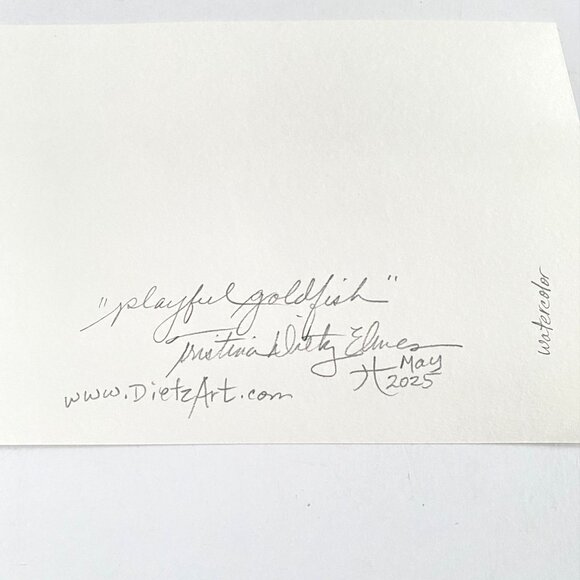 "playful goldfish"
Kristina Dietz Elmes
May
2025
www.DietzArt.com
watercolor